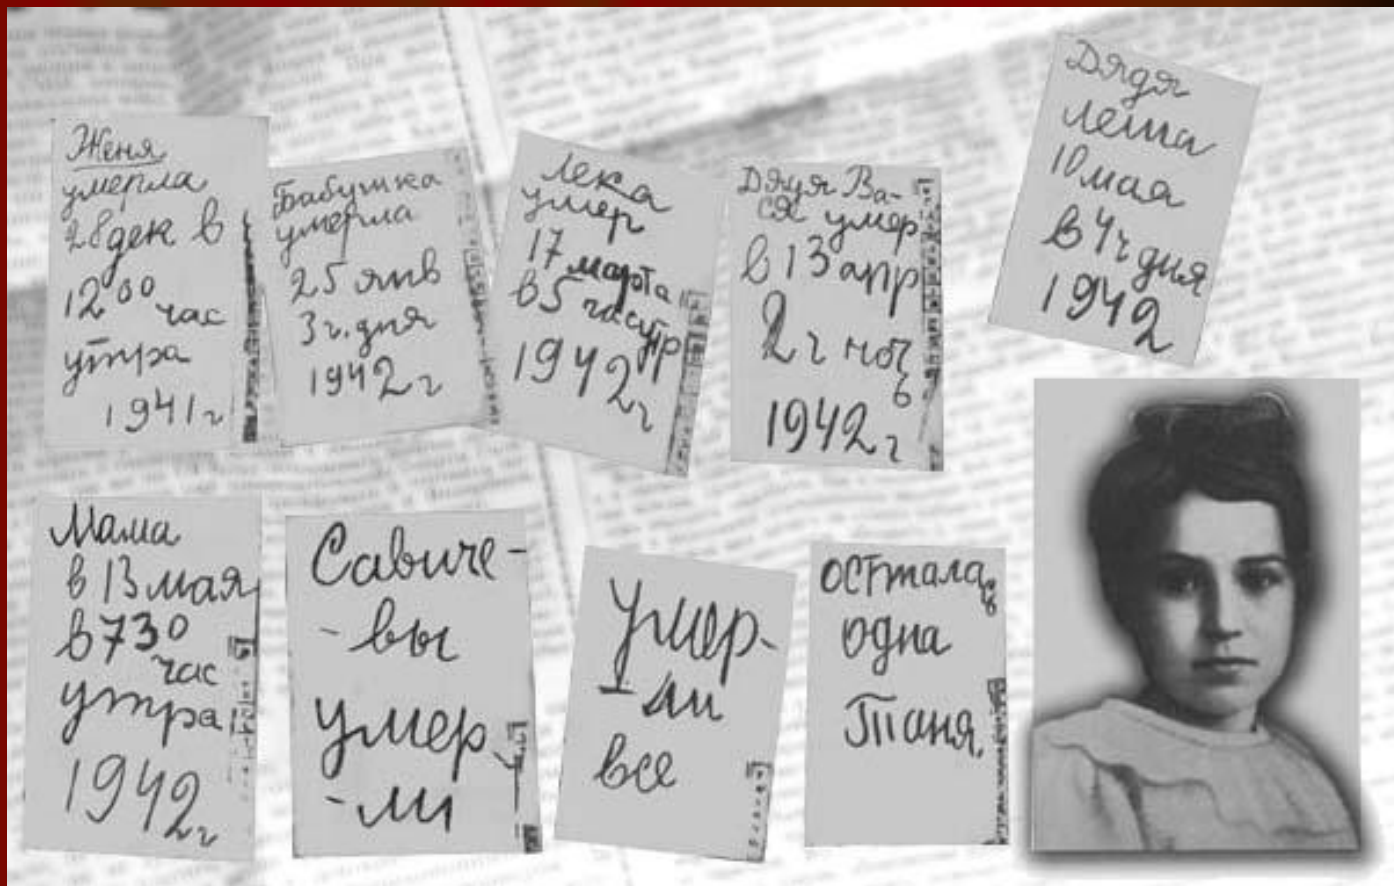 Женя
умерла
28 дек в
12 00 час
утра
1941 г
Бабушка
умерла
25 янв
3 ч. дня
1942 г
Лека
умер
17 марта
в 5 час утр
1942 г
Дядя Ва-
ся умер
в 13 апр
2 ч ноч
ь
1942 г
Дядя
Леша
10 мая
в 4 ч дня
1942
Мама
в 13 мая
в 7 30
час
утра
1942 г
Савиче-
-вы
умер
-ли
Умер-
-ли
все
Осттала
одна
Таня.